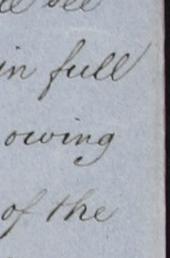 in full
owing
of the